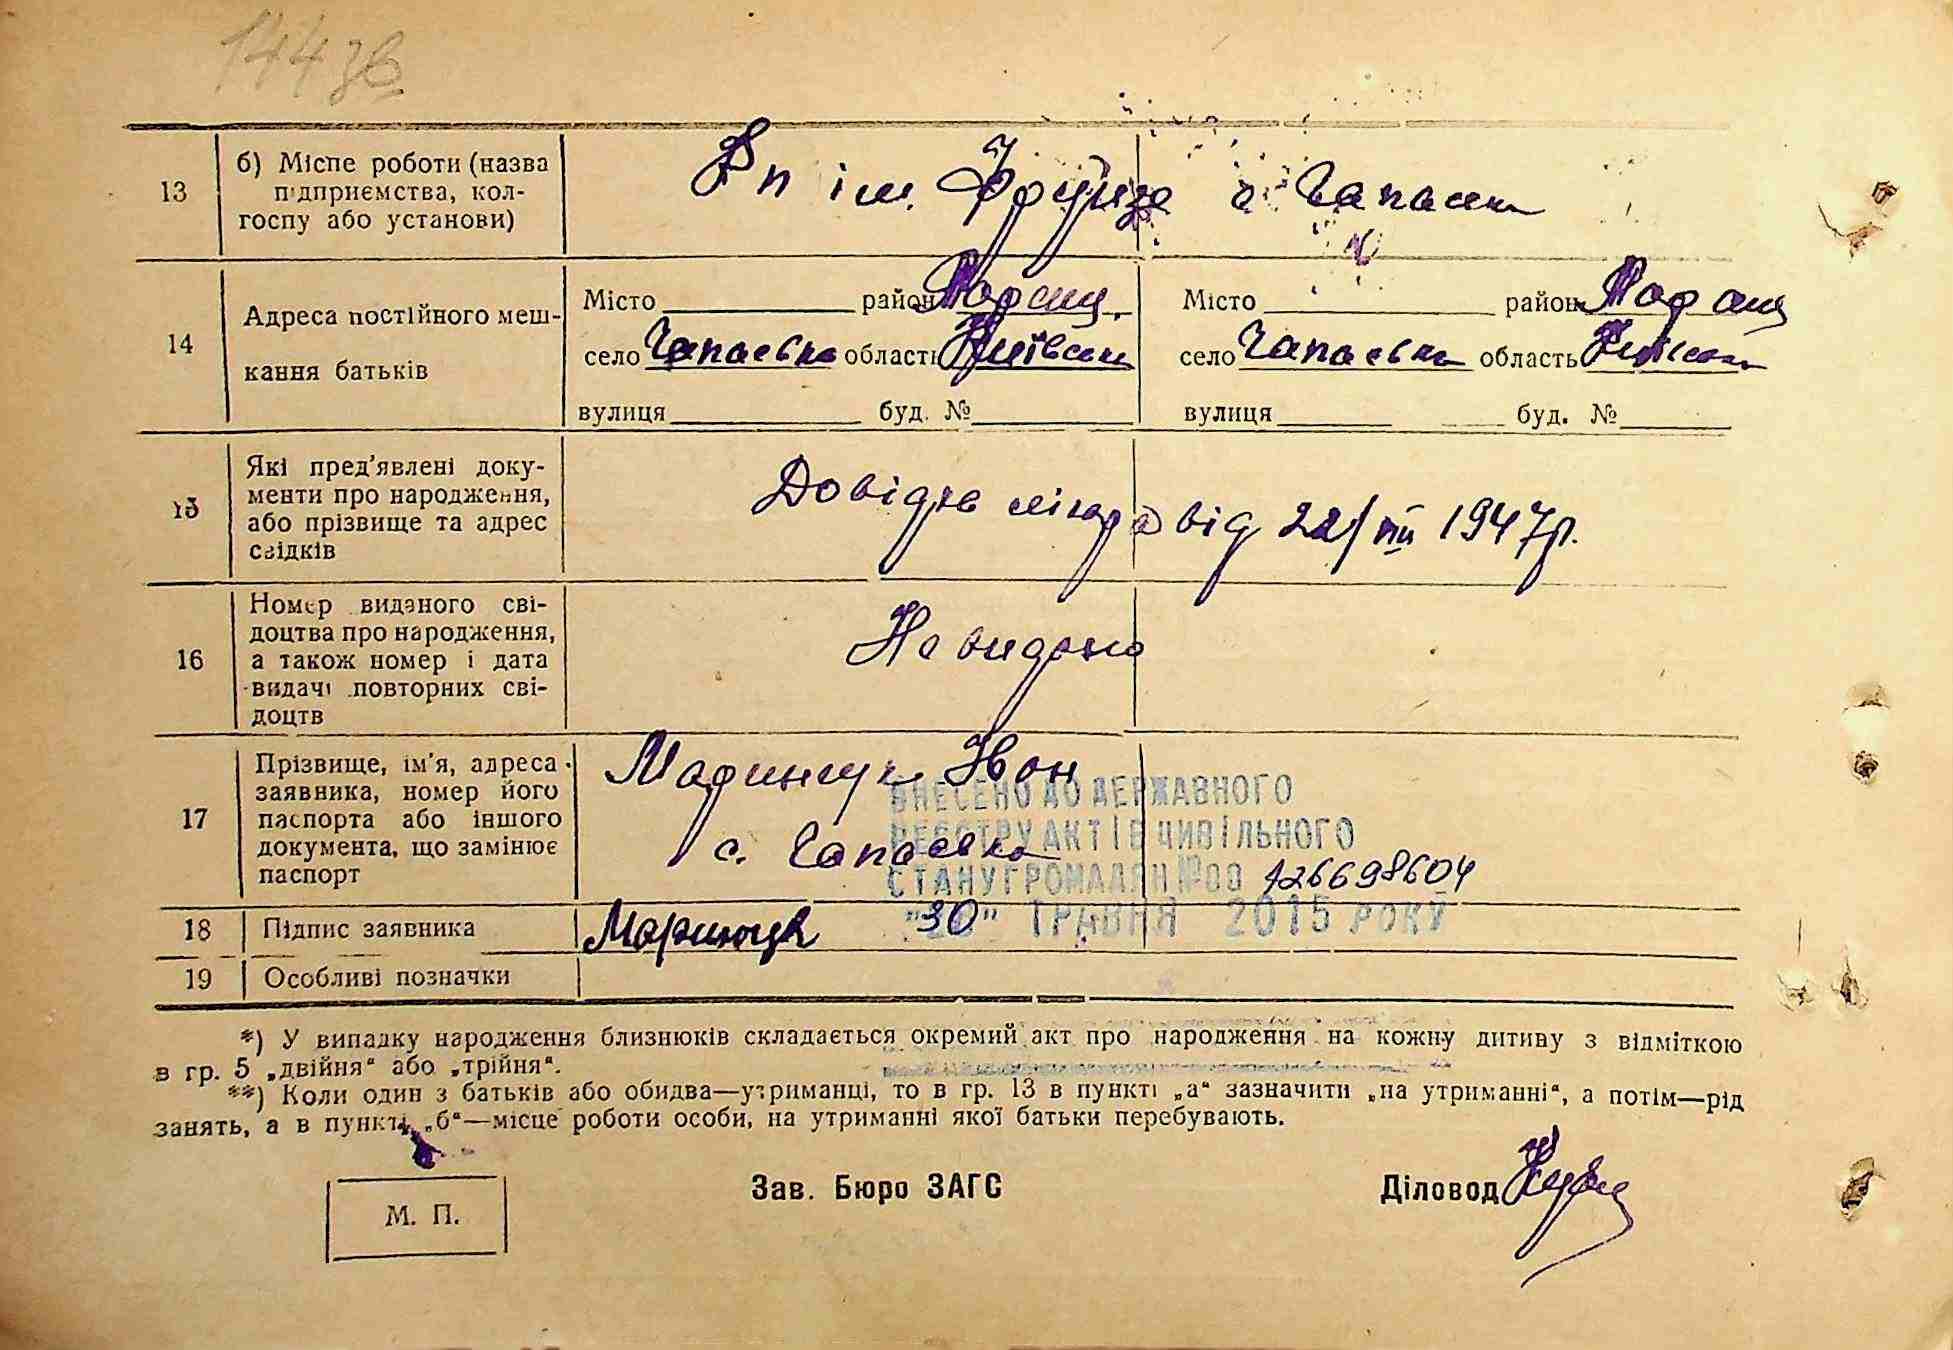 144 зв
13
б) Місце роботи (назва
підприємства, кол-
госпу або установи)
Кп ім. Фрунзе с. Чапаєвки
14
Адреса постійного меш-
кання батьків
Місто район
село Чапаєвка область Київська
вулиця буд. №
Місто район
село Чапаєвка область Київська
вулиця буд. №
15
Які пред'явлені доку-
менти про народження,
або прізвище та адрес
свідків
Довідка лікаря від 22/VIII 1947 р.
16
Номер виданого сві-
доцтва про народження,
а також номер і дата
видачі повторних сві-
доцтв
Не видано
17
Прізвище, ім'я, адреса
заявника, номер його
паспорта або іншого
документа, що замінює
паспорт
Іван
с. Чапаєвка
ВНЕСЕНО ДО ДЕРЖАВНОГО
РЕЄСТРУ АКТІВ ЦИВІЛЬНОГО
СТАНУ ГРОМАДЯН №00 126698604
"30" ТРАВНЯ 2015 РОКУ
18
Підпис заявника
19
Особливі позначки
*) У випадку народження близнюків складається окремий акт про народження на кожну дитину з відміткою
в гр. 5 „двійня“ або „трійня“.
**) Коли один з батьків або обидва—утриманці, то в гр. 13 в пункті „а“ зазначити „на утриманні“, а потім—рід
занять, а в пункті „б“—місце роботи особи, на утриманні якої батьки перебувають.
М. П.
Зав. Бюро ЗАГС
Діловод